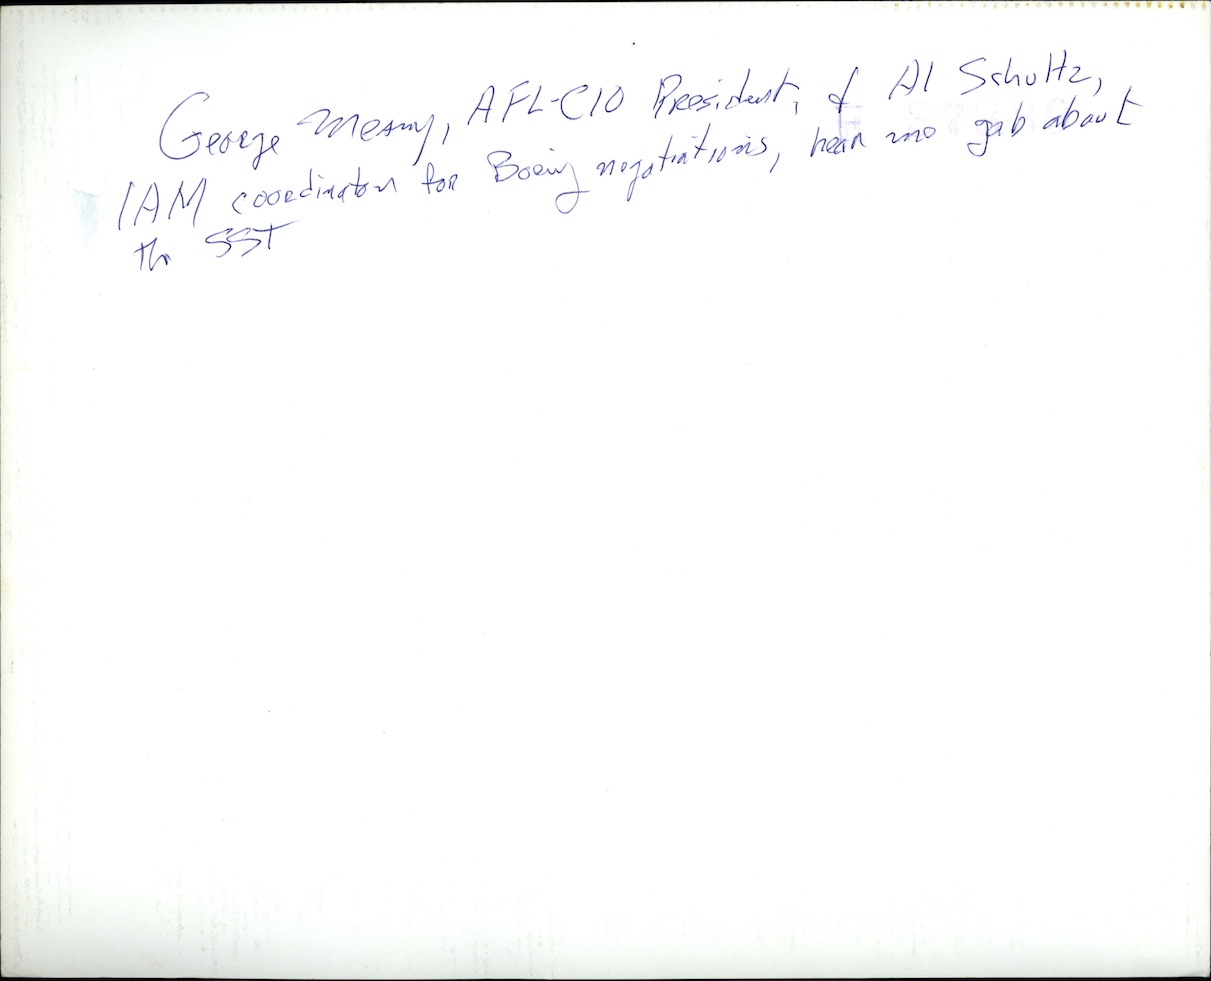 George Meany, AFL-CIO President, & Al Schultz,
IAM coordinator for Boeing negotiations, hear me gab about
the SST